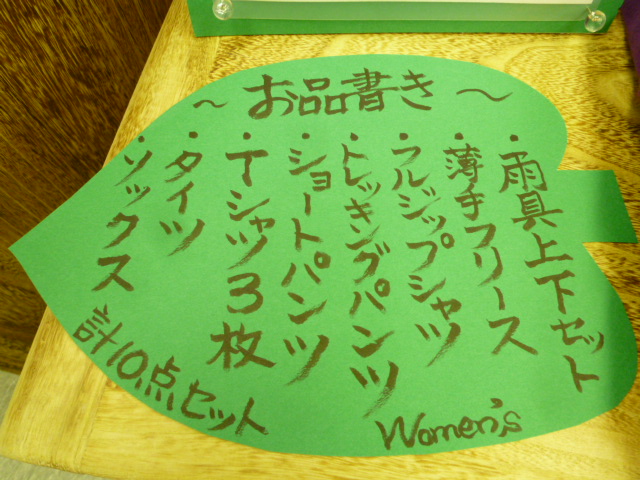 ～ お品書き ～
・雨具上下セット
・薄手フリース
・フルジップシャツ
・トレッキングパンツ
・ショートパンツ
・Tシャツ3枚
・タイツ
・ソックス
計10点セット
Women's